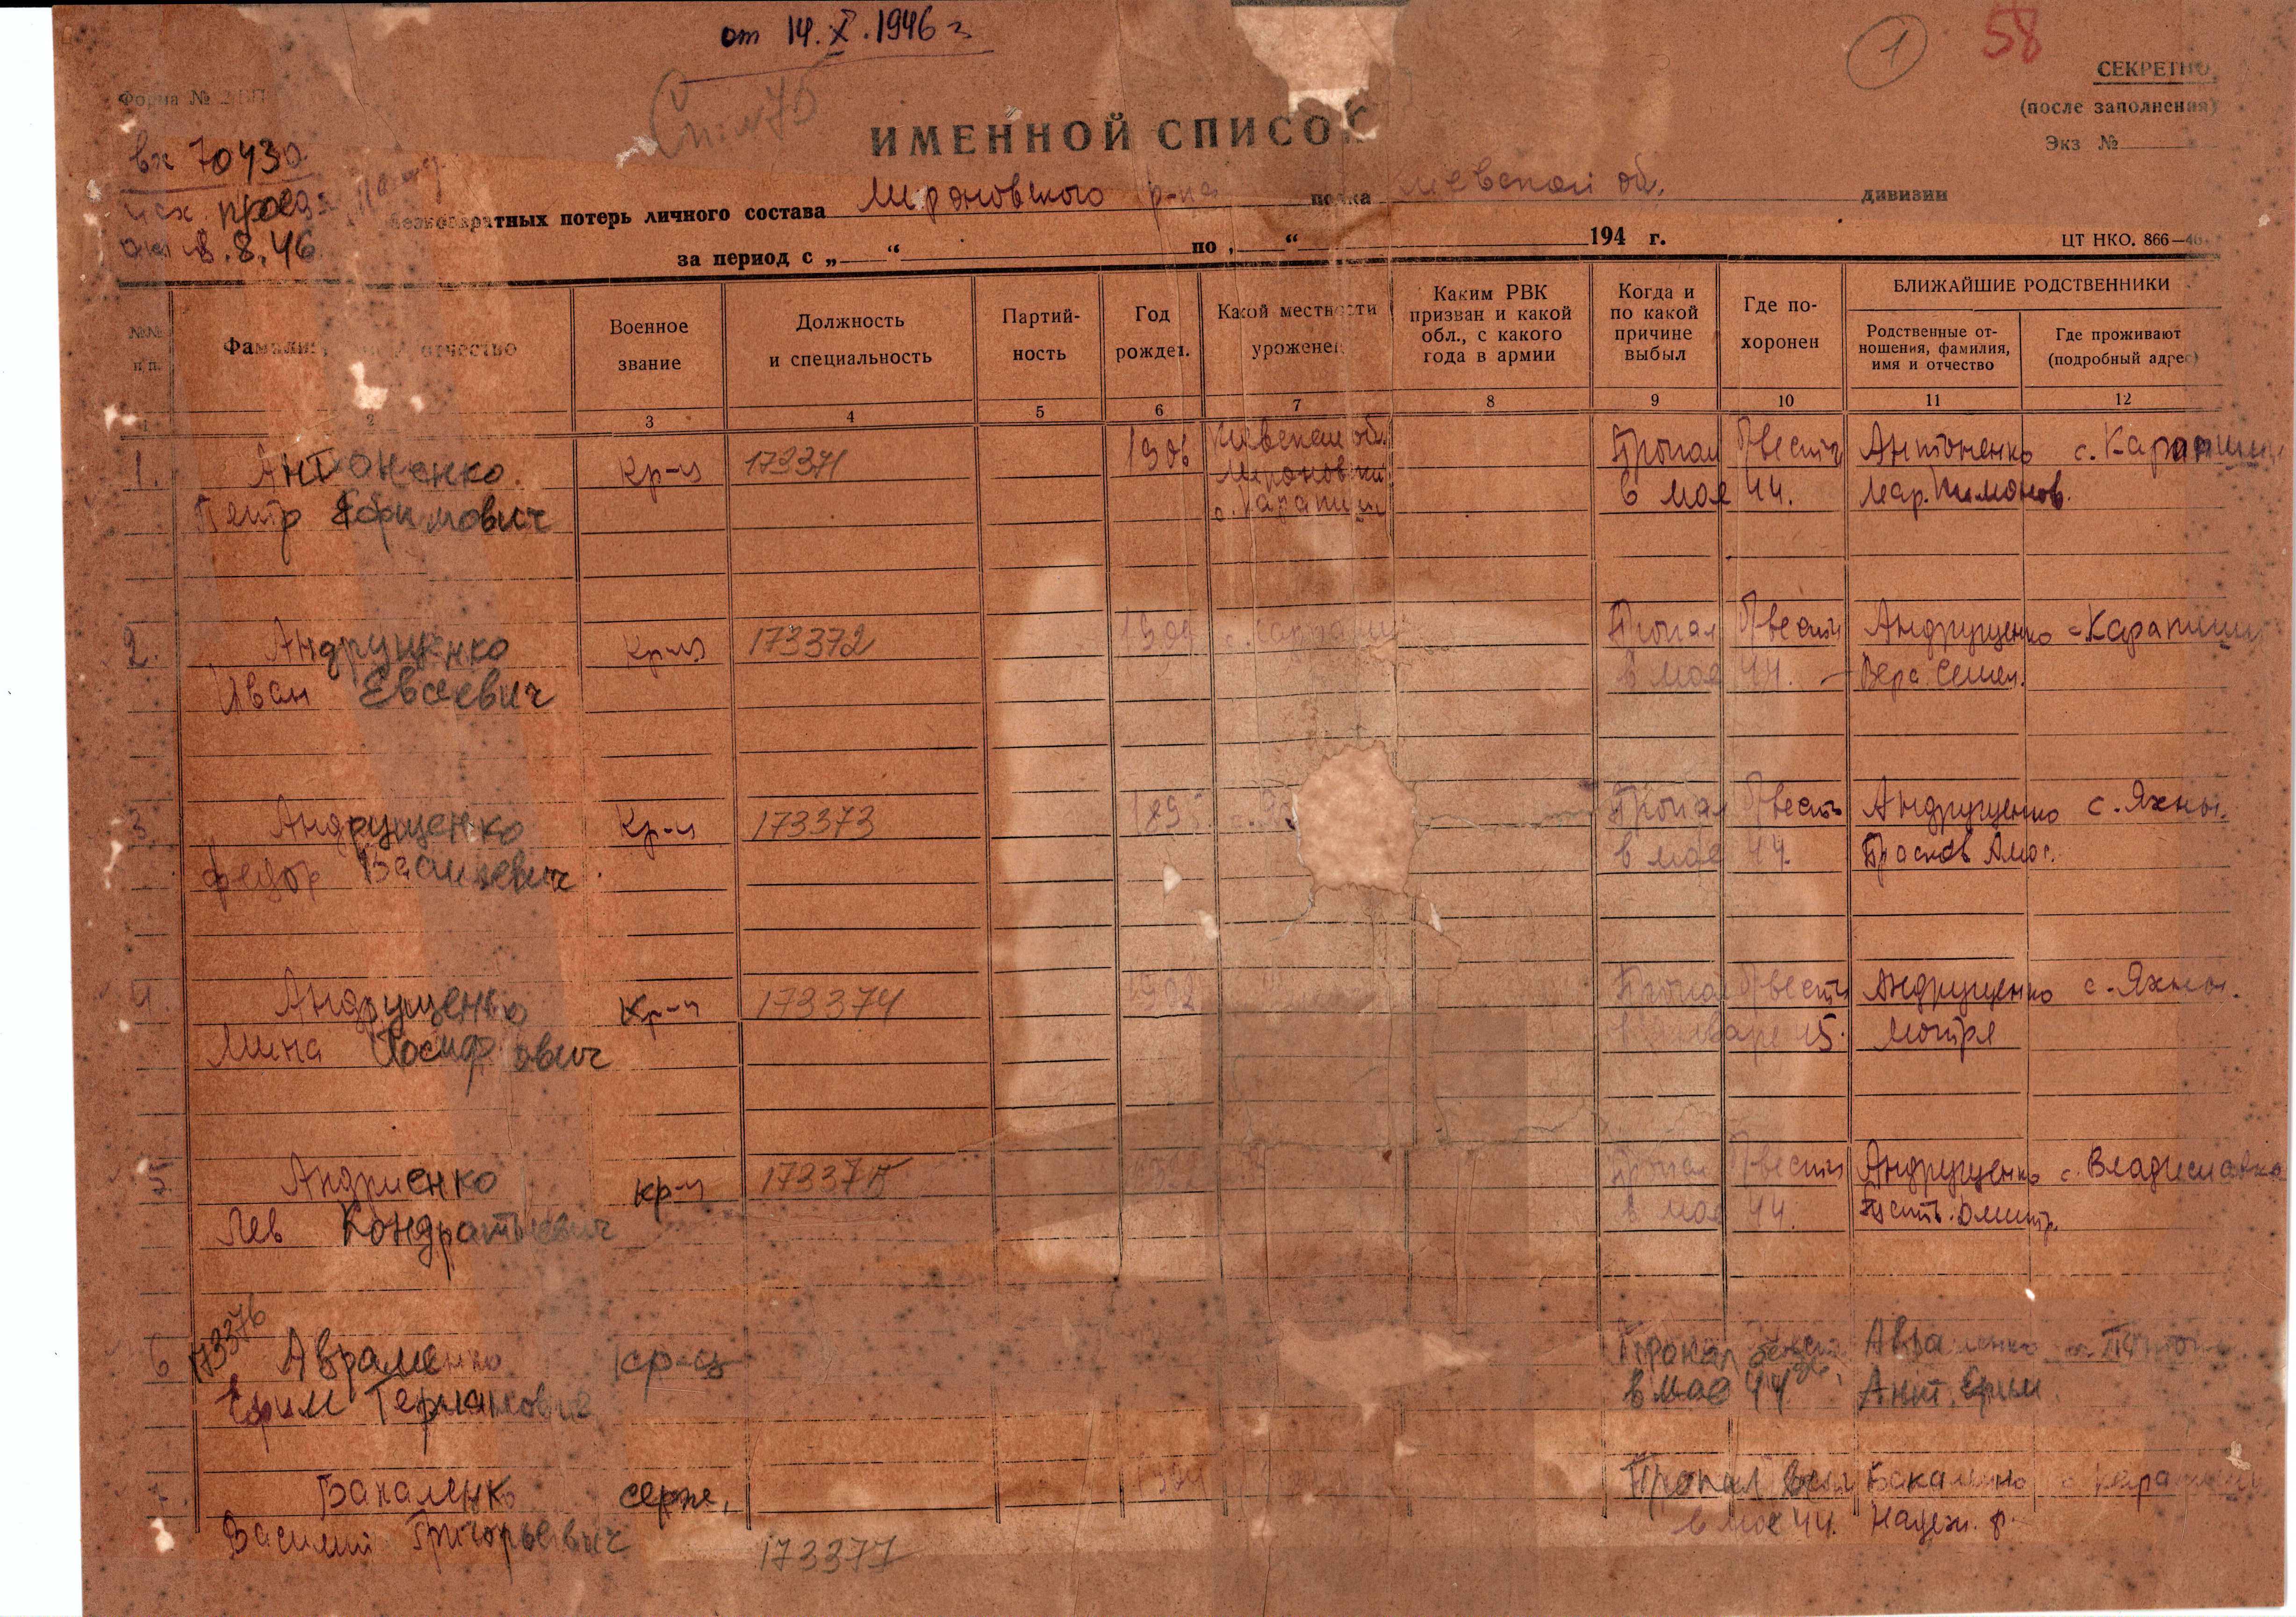 от 14.X.1946 г
1
58
СЕКРЕТНО
(после заполнения)
Экз №
Форма №
вх 70430
от 8.8.46
ИМЕННОЙ СПИСОК
безвозвратных потерь личного состава Мироновского р-на полка Киевской об. дивизии
за период с „ “ по „ “ 194 г.
ЦТ НКО. 866—
№№ п/п.
Фамилия, имя, отчество
Военное звание
Должность и специальность
Партий-ность
Год рожден.
Какой местности уроженец
Каким РВК призван и какой обл., с какого года в армии
Когда и по какой причине выбыл
Где по-хоронен
БЛИЖАЙШИЕ РОДСТВЕННИКИ
Родственные от-ношения, фамилия, имя и отчество
Где проживают (подробный адрес)
1 2 3 4 5 6 7 8 9 10 11 12
1. Антоненко Кр-ц 173371 1906 Киевской об. Пропал б/вести Антоненко с. Карапиши
Петр Ефимович Мироновский с. Карапиши в мае 44. Мар. Пимонов.
2. Андрущенко Кр-ц 173372 Пропал б/вести Андрущенко с Карапиши
Иван Евсеевич в мае 44. Вера Семен.
3. Андрущенко Кр-ц 173373 189 Пропал б/вести Андрущенко с. Яхны.
Федор Васильевич в мае 44. Прасков Амос.
4. Андрущенко Кр-ц 173374 1902 Пропал б/вести Андрущенко с. Яхны.
Мина Иосифович в январе 45. Мотря
5. Андриенко кр-ц 173375 Пропал б/вести Андрущенко с. Владиславка
Лев Кондратьевич в мае 44. Дмитр.
6 173376 Авраменко кр-ц Пропал Авраменко
Ефим Германович в мае 44 Ант. Ефим.
Бакаленко серж. Пропал Бакаленко с Карапиши
Василий Григорьевич 173377 в мае 44. Надеж. Ф.